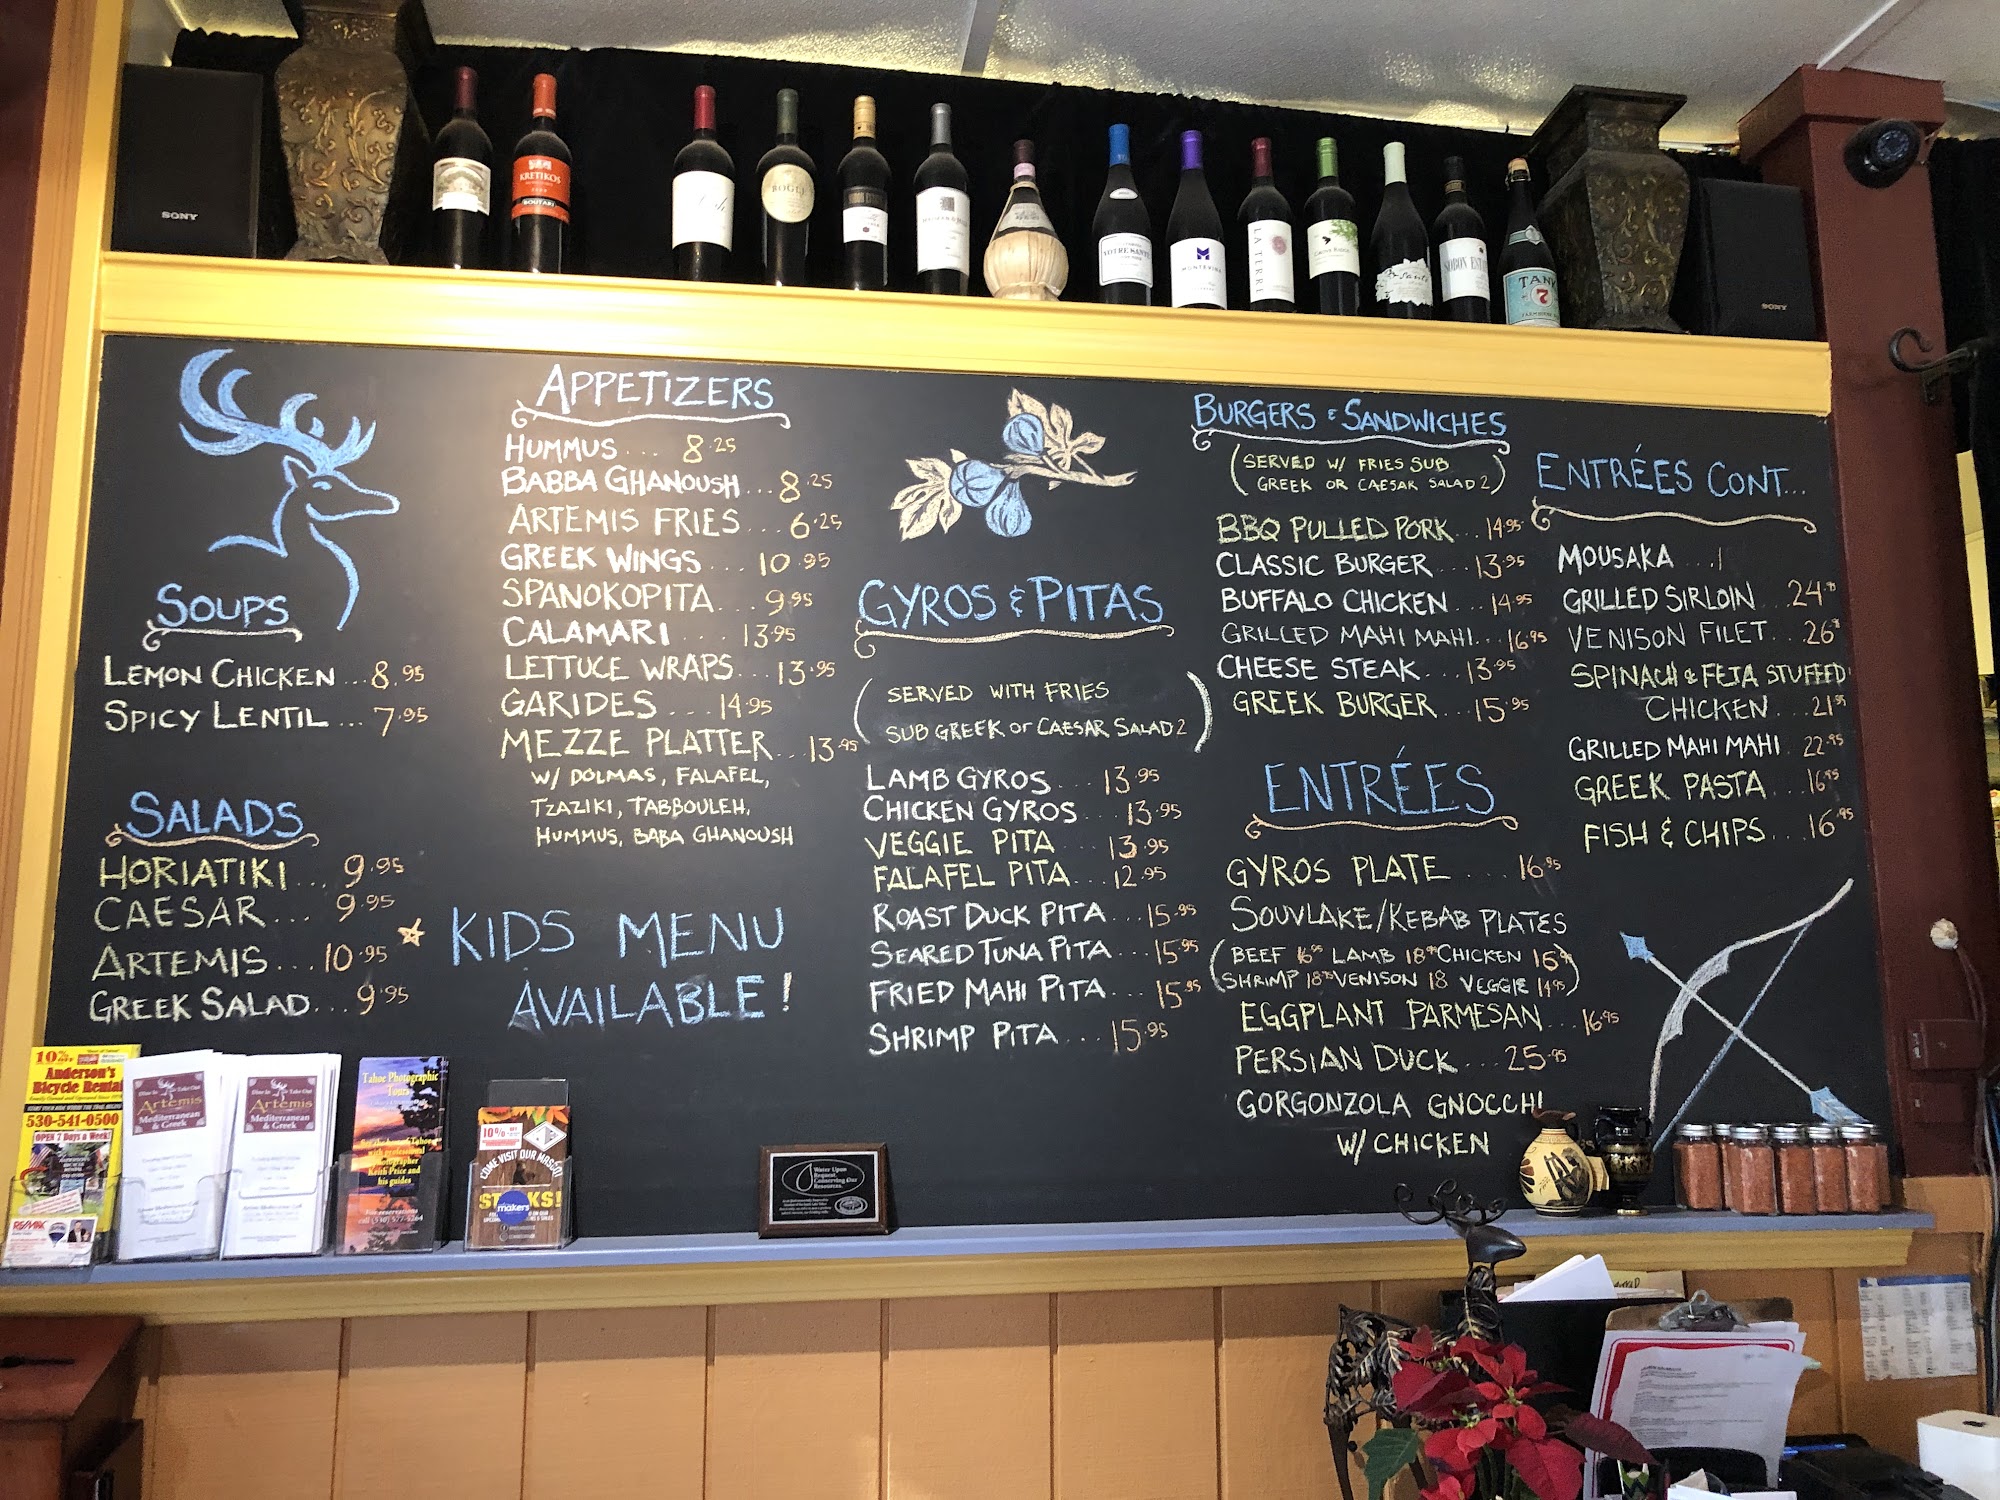 SONY
KRETIKOS
BOUTARI
LA TERRE
TANK
7
SONY
SOUPS
LEMON CHICKEN ... 8.95
SPICY LENTIL ... 7.95
SALADS
HORIATIKI ... 9.95
CAESAR ... 9.95
ARTEMIS ... 10.95
GREEK SALAD ... 9.95
APPETIZERS
HUMMUS ... 8.25
BABBA GHANOUSH ... 8.25
ARTEMIS FRIES ... 6.25
GREEK WINGS ... 10.95
SPANOKOPITA ... 9.95
CALAMARI ... 13.95
LETTUCE WRAPS ... 13.95
GARIDES ... 14.95
MEZZE PLATTER ... 13.95
W/ DOLMAS, FALAFEL,
TZAZIKI, TABBOULEH,
HUMMUS, BABA GHANOUSH
KIDS MENU
AVAILABLE!
GYROS & PITAS
(SERVED WITH FRIES
SUB GREEK or CAESAR SALAD 2)
LAMB GYROS ... 13.95
CHICKEN GYROS ... 13.95
VEGGIE PITA ... 13.95
FALAFEL PITA ... 12.95
ROAST DUCK PITA ... 15.95
SEARED TUNA PITA ... 15.95
FRIED MAHI PITA ... 15.95
SHRIMP PITA ... 15.95
BURGERS & SANDWICHES
(SERVED W/ FRIES SUB
GREEK OR CAESAR SALAD 2)
BBQ PULLED PORK ... 14.95
CLASSIC BURGER ... 13.95
BUFFALO CHICKEN ... 14.95
GRILLED MAHI MAHI ... 16.95
CHEESE STEAK ... 13.95
GREEK BURGER ... 15.95
ENTRÉES
GYROS PLATE .... 16.95
SOUVLAKE/KEBAB PLATES
(BEEF 16.95 LAMB 18.95 CHICKEN 16.95
SHRIMP 18.95 VENISON 18 VEGGIE 14.95)
EGGPLANT PARMESAN ... 16.95
PERSIAN DUCK ... 25.95
GORGONZOLA GNOCCHI
W/ CHICKEN
ENTRÉES CONT...
MOUSAKA ... 1
GRILLED SIRLOIN ... 24.95
VENISON FILET ... 26.95
SPINACH & FETA STUFFED
CHICKEN ... 21.95
GRILLED MAHI MAHI . 22.95
GREEK PASTA ... 16.95
FISH & CHIPS ... 16.95
10% OFF
Anderson's
Bicycle Rental
530-541-0500
OPEN 7 Days a Week!
RE/MAX
Dine In Take Out
Artemis
Mediterranean
& Greek
Dine In Take Out
Artemis
Mediterranean
& Greek
Tahoe Photographic
Tours
with professional
photographer
Keith Price and
his guides
10%
COME VISIT OUR MASCOT
makers
Water Upon
Request
Conserving Our
Resources.